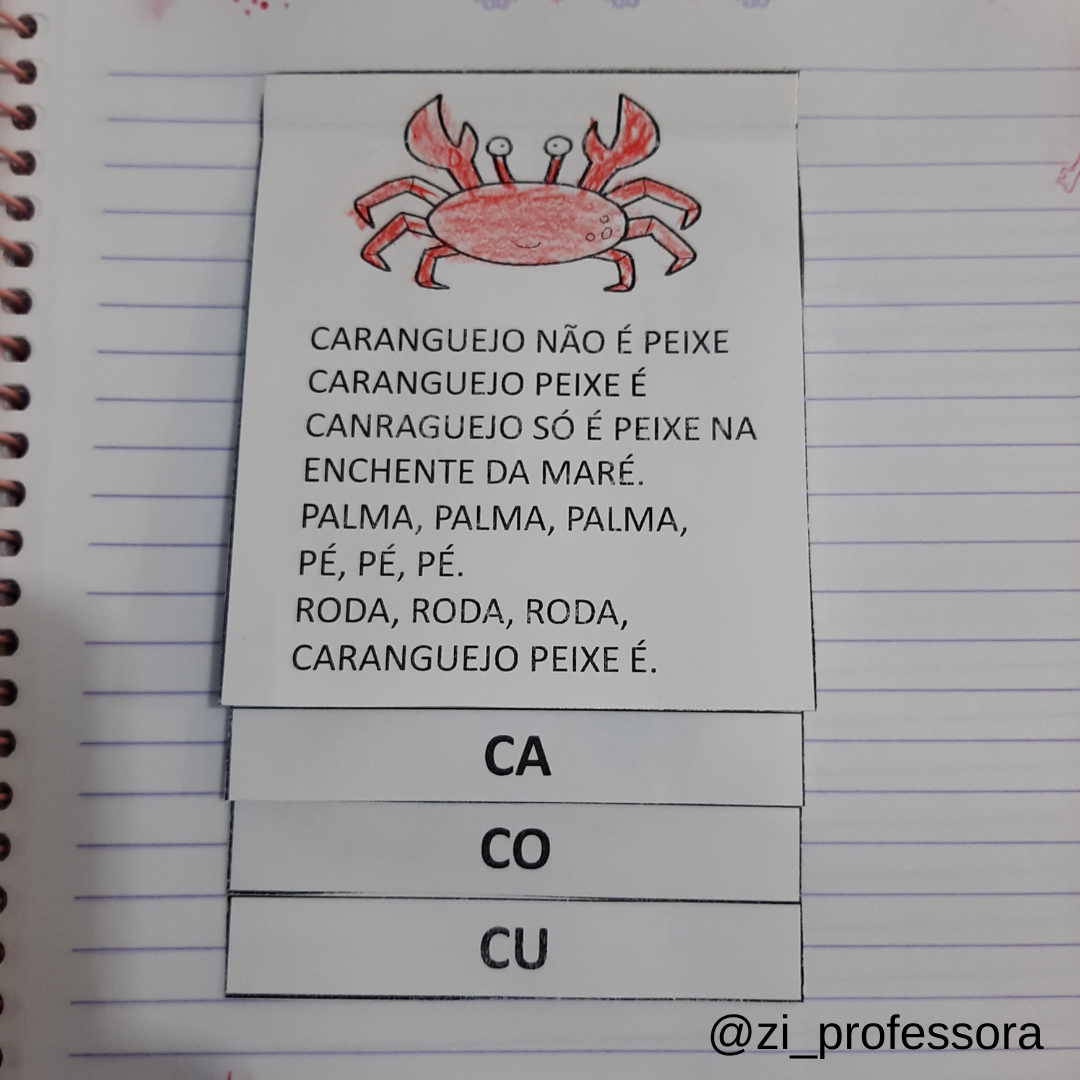 CARANGUEJO NÃO É PEIXE
CARANGUEJO PEIXE É
CANRAGUEJO SÓ É PEIXE NA
ENCHENTE DA MARÉ.
PALMA, PALMA, PALMA,
PÉ, PÉ, PÉ.
RODA, RODA, RODA,
CARANGUEJO PEIXE É.
CA
CO
CU
@zi_professora